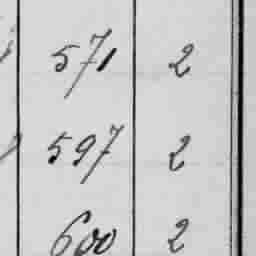 571 2
597 2
600 2